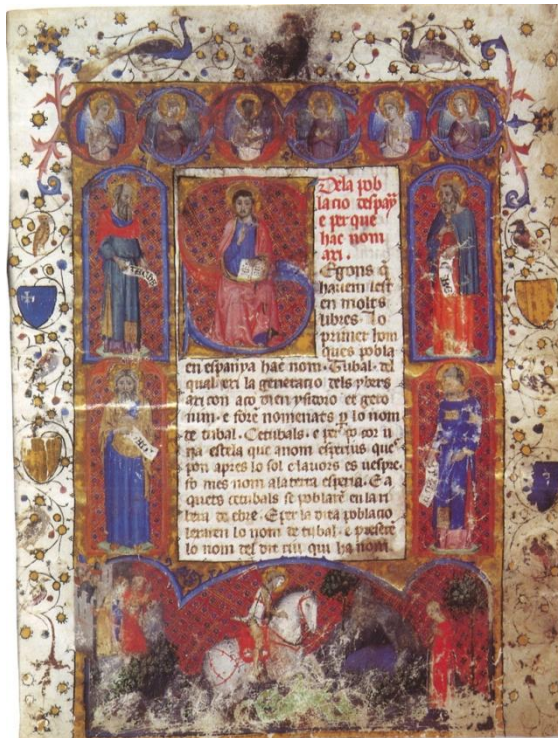 Dela pob
lacio despay
e per que
hac nom
axi.
Egons q
havem lest
en molts
libres lo
primer hom
ques pobla
en espanya hac nom Tubal del
qual exi la generacio dels ybers
axi con aço dien ysidoro et gero
nim e foren nomenats p lo nom
de tubal Cetubals e per ço cor u
na estela que anom esperus ques
pon apres lo sol e lavors es vespre
fo mes nom ala terra esperia E a
quets cetubals se poblaren en la ri
bera de ebre E per la dita poblacio
lexaren lo nom de tubal e preseren
lo nom del dit riu qui ha nom